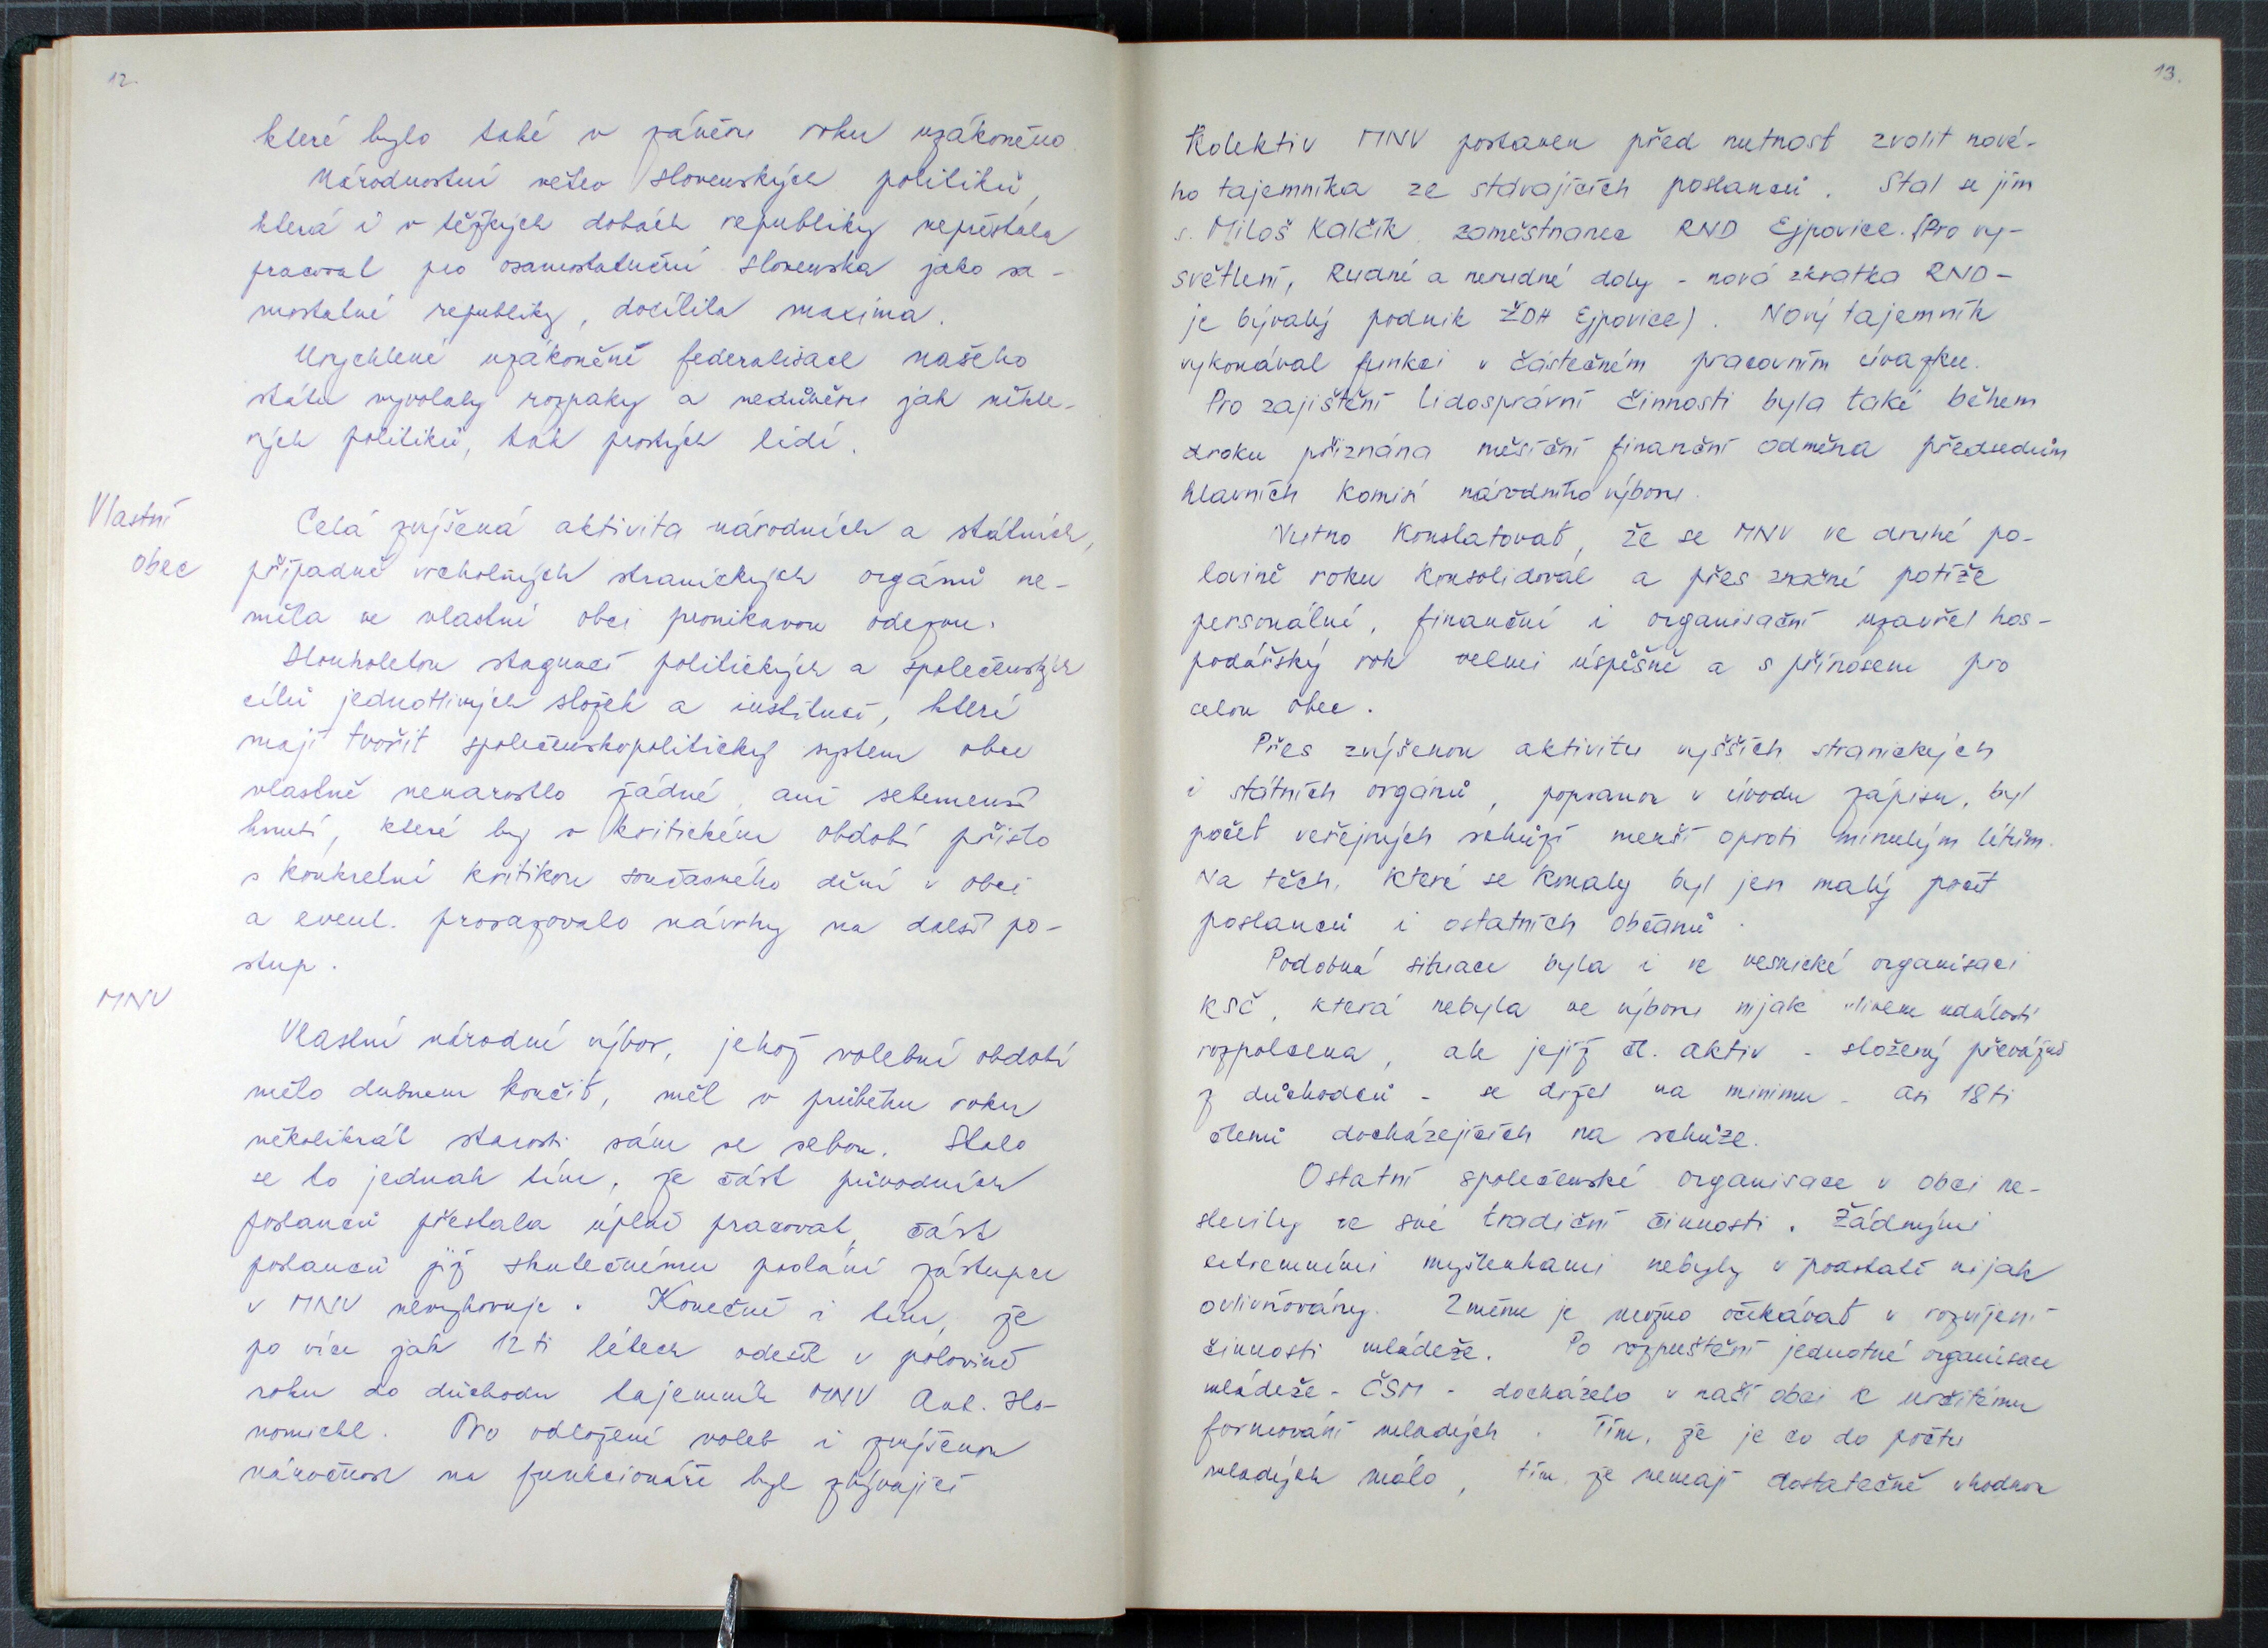 12.
které bylo také v závěru roku uzákoněno.
Národnostní větev slovenských politiků,
která i v těžkých dobách republiky nepřestala
pracovat pro osamostatnění Slovenska jako sa-
mostatné republiky, docílila maxima.
Urychlené uzákonění federalisace našeho
státu vyvolaly rozpaky a nedůvěru jak někte-
rých politiků, tak prostých lidí.
Vlastní
obec
Celá zvýšená aktivita národních a státních,
případně vrcholných stranických orgánů ne-
měla ve vlastní obci pronikavou odezvu.
Mnoholetou stagnací politických a společenských
cílů jednotlivých složek a institucí, které
mají tvořit společenskopolitický system obce
vlastně nenarostlo žádné, ani sebemenší
hnutí, které by v kritickém období přišlo
s konkretní kritikou současného dění v obci
a event. prosazovalo návrhy na další po-
stup.
MNV
Vlastní národní výbor, jehož volební období
mělo dubnem končit, měl v průběhu roku
několikrát starosti sám se sebou. Stalo
se to jednak tím, že část původních
poslanců přestala úplně pracovat, část
poslanců již skutečnému poslání zástupce
v MNV nevyhovuje. Konečně i tím, že
po více jak 12ti létech odešel v polovině
roku do důchodu tajemník MNV Ant. Hla-
nomichl. Pro odložení voleb i zvýšenou
náročnost na funkcionáře byl zbývající
13.
Kolektiv MNV postaven před nutnost zvolit nové-
ho tajemníka ze stávajících poslanců. Stal se jím
s. Miloš Kalčík, zaměstnanec RND Ejpovice. (Pro vy-
světlení, Rudné a nerudné doly - nová zkratka RND -
je bývalý podnik ŽDH Ejpovice). Nový tajemník
vykonával funkci v částečném pracovním úvazku.
Pro zajištění lidosprávní činnosti byla také během
roku přiznána měsíční finanční odměna předsedům
hlavních komisí národního výboru.
Nutno konstatovat, že se MNV ve druhé po-
lovině roku konsolidoval a přes značné potíže
personální, finanční i organisační uzavřel hos-
podářský rok velmi úspěšně a s přínosem pro
celou obec.
Přes zvýšenou aktivitu vyšších stranických
i státních orgánů, popsanou v úvodu zápisu, byl
počet veřejných schůzí menší oproti minulým létům.
Na těch, které se konaly byl jen malý počet
poslanců i ostatních občanů.
Podobná situace byla i ve vesnické organisaci
KSČ, která nebyla ve výboru nijak vlivem událostí
rozpolcena, ale jejíž čl. aktiv - složený převážně
z důchodců - se držel na minimu - asi 18ti
členů docházejících na schůze.
Ostatní společenské organisace v obci ne-
slevily ze své tradiční činnosti. Žádnými
extremními myšlenkami nebyly v podstatě nijak
ovlivňovány. Změnu je možno očekávat v rozvíjení
činnosti mládeže. Po rozpuštění jednotné organisace
mládeže - ČSM - docházelo v naší obci k určitému
formování mladých. Tím, že je co do počtu
mladých málo, tím, že nemají dostatečně vhodnou